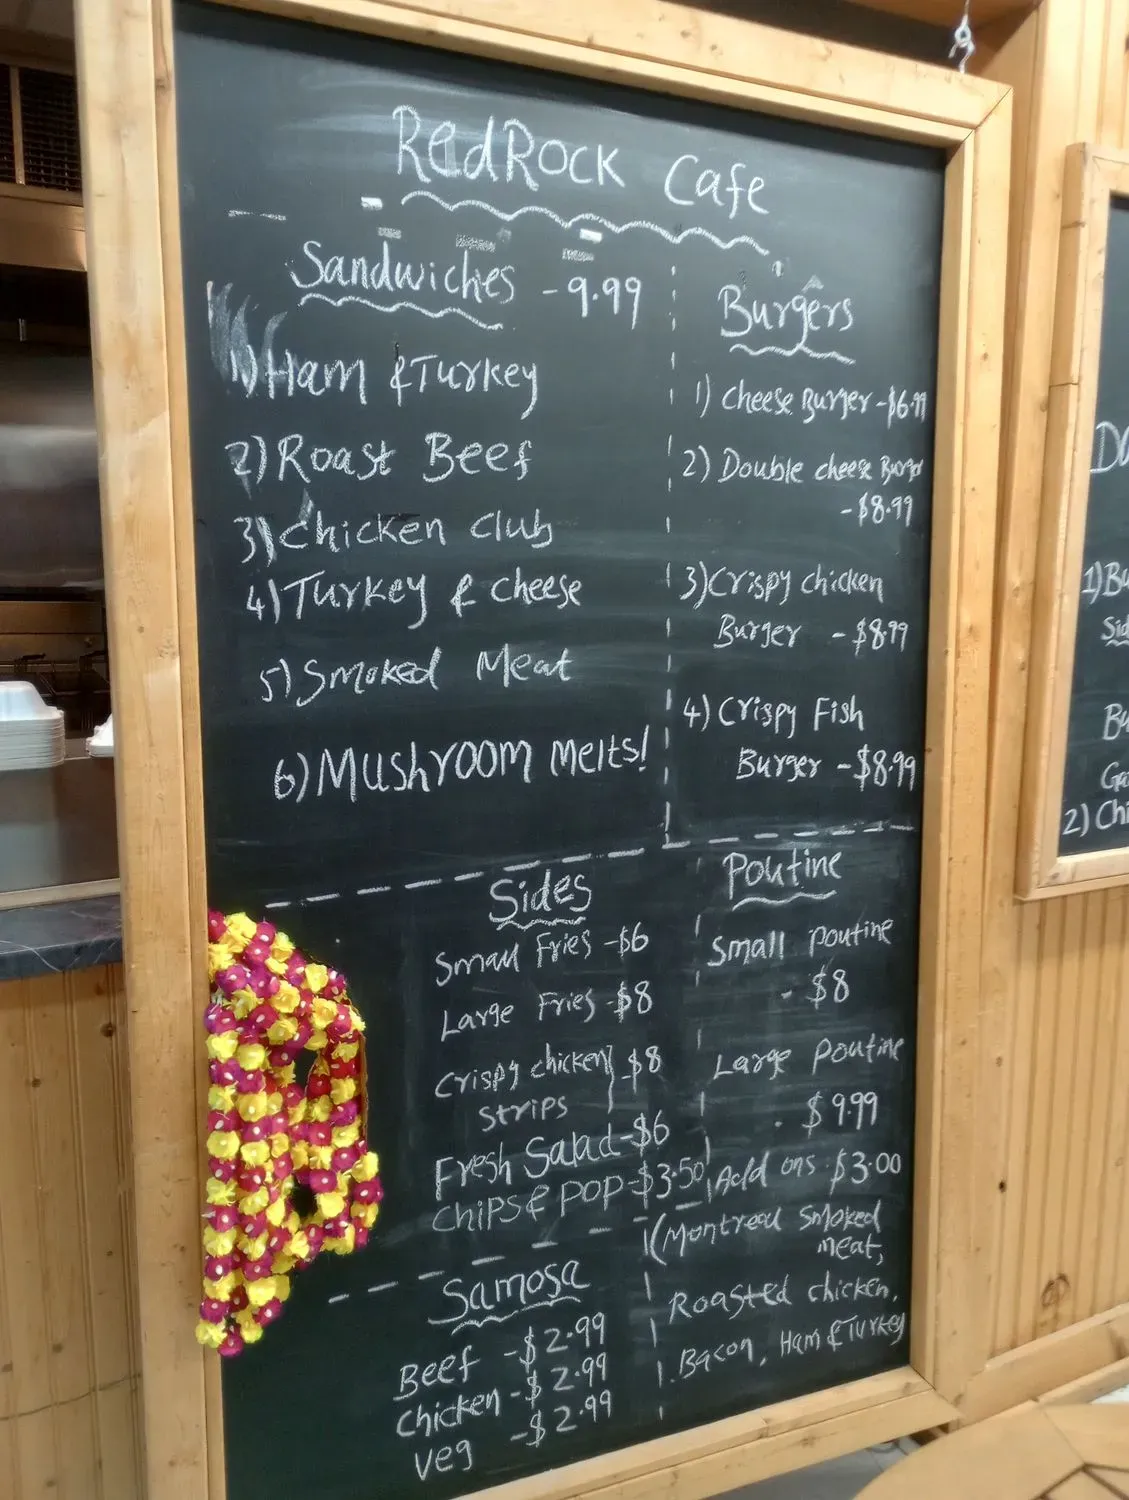 RedRock Cafe
Sandwiches - 9.99
1) Ham & Turkey
2) Roast Beef
3) Chicken Club
4) Turkey & Cheese
5) Smoked Meat
6) Mushroom Melts!
Burgers
1) Cheese Burger - $6.99
2) Double cheese Burger
- $8.99
3) Crispy chicken
Burger - $8.99
4) Crispy Fish
Burger - $8.99
Sides
Small Fries - $6
Large Fries - $8
Crispy chicken } $8
Strips
Fresh Salad - $6
Chips & Pop - $3.50
Poutine
Small Poutine
- $8
Large Poutine
- $9.99
Add ons $3.00
(Montreal smoked
meat,
Roasted chicken,
Bacon, Ham & Turkey
Samosa
Beef - $2.99
Chicken - $2.99
Veg - $2.99
1) Bu
Sid
Bu
2) Chi